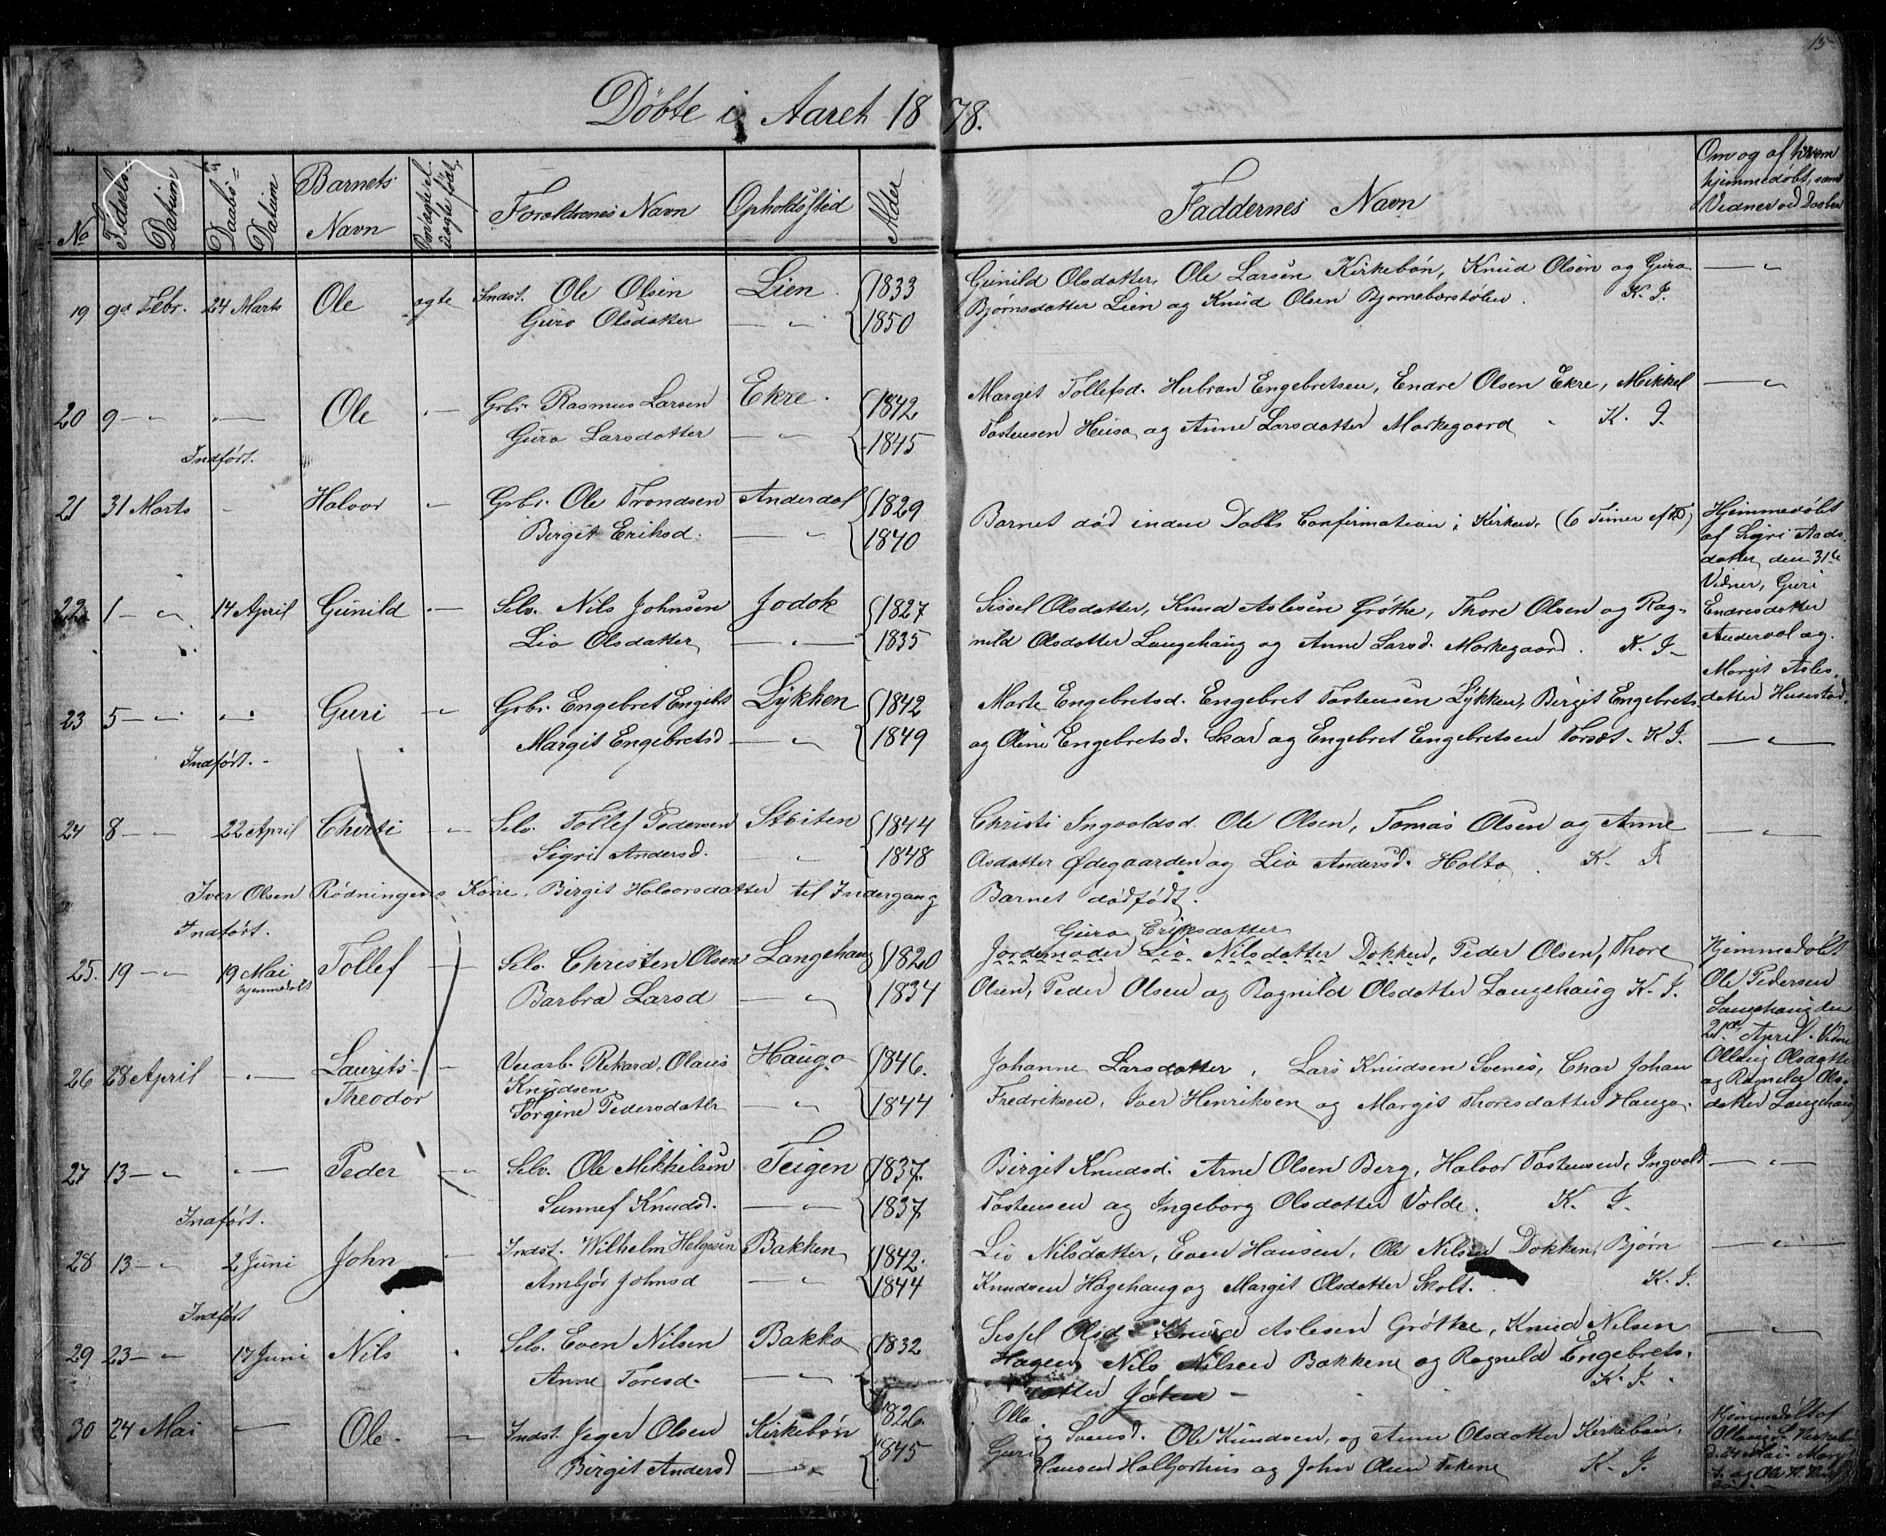 15
Döbte i Aaret 1878.
No Födsels-Datum Daabs-Datum Barnets Navn Om ægte el. uægte född. Forældrenes Navn Opholdssted Alder Faddernes Navn Om og af hvem hjemmedöbt, samt Vidner ved Daaben
19 9de Febr. 24 Marts Ole ægte Indst. Ole Olsen Lien 1833 Gunild Olsdatter, Ole Larsen Kirkebøn, Knud Olsen og Guro — "
Guro Olsdatter — " 1850 Bjørnsdatter Lien og Knud Olsen Bjørnebærstølen. K. I.
20 9 — " " — Ole " — Grbr. Rasmus Larsen Ekre. 1842 Margit Tollefsd. Herbran Engebretsen, Endre Olsen Ekre, Mikkel — "
Guro Larsdatter — " 1845 Tostensen Huso og Anne Larsdatter Markegaard K. I.
Indført.
21 31 Marts " Halvor " — Grbr. Ole Trondsen Anderdal 1829 Barnet död inden Daabs Confirmation i Kirken. (6 Timer efter) Hjemmedøbt
Birgit Eriksd. — " 1840 af Sigri Aads-
datter den 31te
22 1 — " 14 April Gunild " — Selv. Nils Johnsen Jodok 1827 Sissel Olsdatter, Knud Aslesen Grøthe, Thore Olsen og Rag- Vidner, Guri Endresdatter
Liv Olsdatter — " — 1835 nild Olsdatter Langehaug og Anne Larsd. Markegaard. K. I. Anderdal og
Margit Asles-
23 5 — " " — Guri " Grbr. Engebret Engebts Lykken 1842 Marte Engebretsd. Engebret Tostensen Lykken, Birgit Engebrets. datter Husestad.
Margit Engebretsd — " 1849 og Oline Engebretsd. Skar og Engebret Engebretsen Torsæt. K I. — "
Indført. -
24 8 — " 22 April Christi " Selv. Tollef Pedersen Støiten 1844 Christi Ingvoldsd. Ole Olsen, Tomas Olsen og Anne — "
Sigri Andersd. " 1848 Asdatter Ødegaarden og Liv Andersd. Holto. K. I.
Iver Olsen Rødningens Kone, Birgit Halvorsdatter til Indergang Barnet dødfödt.
Indført. Guro Eriksdatter
25. 19 — " 19 Mai Tollef — Selv. Christen Olsen Langehaug 1820 Jordemoder Liv Nilsdatter Dokken, Peder Olsen, Thore Hjemmedøbt
hjemmedøbt Barbra Larsd — " 1834 Olsen, Peder Olsen og Ragnild Olsdatter Langehaug K. I. Ole Pedersen
Langehaug den
21de April. Vidne
26 28 April " — Laurits- Veiarb. Rikard Olaus Haugo 1846. Johanne Larsdatter, Lars Knudsen Svenes, Char Johan Ollaug Olsdatter
Theodor Knudsen og Ragnild Ols-
Sørgine Pedersdattr — " 1844 Fredriksen, Iver Henriksen og Margit Thoresdatter Haugo. datter Langehaug
27 13 — " " — Peder — " Selv. Ole Mikkelsen Teigen 1837. Birgit Knudsd. Arne Olsen Berg, Halvor Tostensen, Ingvold — "
Sunnef Knudsd. — " 1837 Tostensen og Ingeborg Olsdatter Volde. K. I.
Indført.
28 13 — " 2 Juni John " Indst. Wilhelm Helgesen Bakken 1842. Liv Nilsdatter, Even Hansen, Ole Nilsen Dokken, Bjørn — "
Ambjør Johnsd — " 1844 Knudsen Høgehaug og Margit Olsdatter Skolt. K. I.
Indført
29 23 — " 17 Juni Nils . Selv. Even Nilsen Bakko 1832 Sissel Olsd Knud Aslesen Grøthe, Knud Nilsen — "
Anne Toresd — " Hagen, Nils Nilsen Bakkene og Ragnild Engebrets.
datter K. I.
30 24 Mai " Ole. — Indst. Jeger Olsen Kirkebøn 1826. Olla ig Svensd. Ole Knudsen, og Anne Olsdatter Kirkebøn, Hjemmedøbt af
Birgit Andersd — " 1845 Guri Hansen Halgorhus og John Olsen K. I.